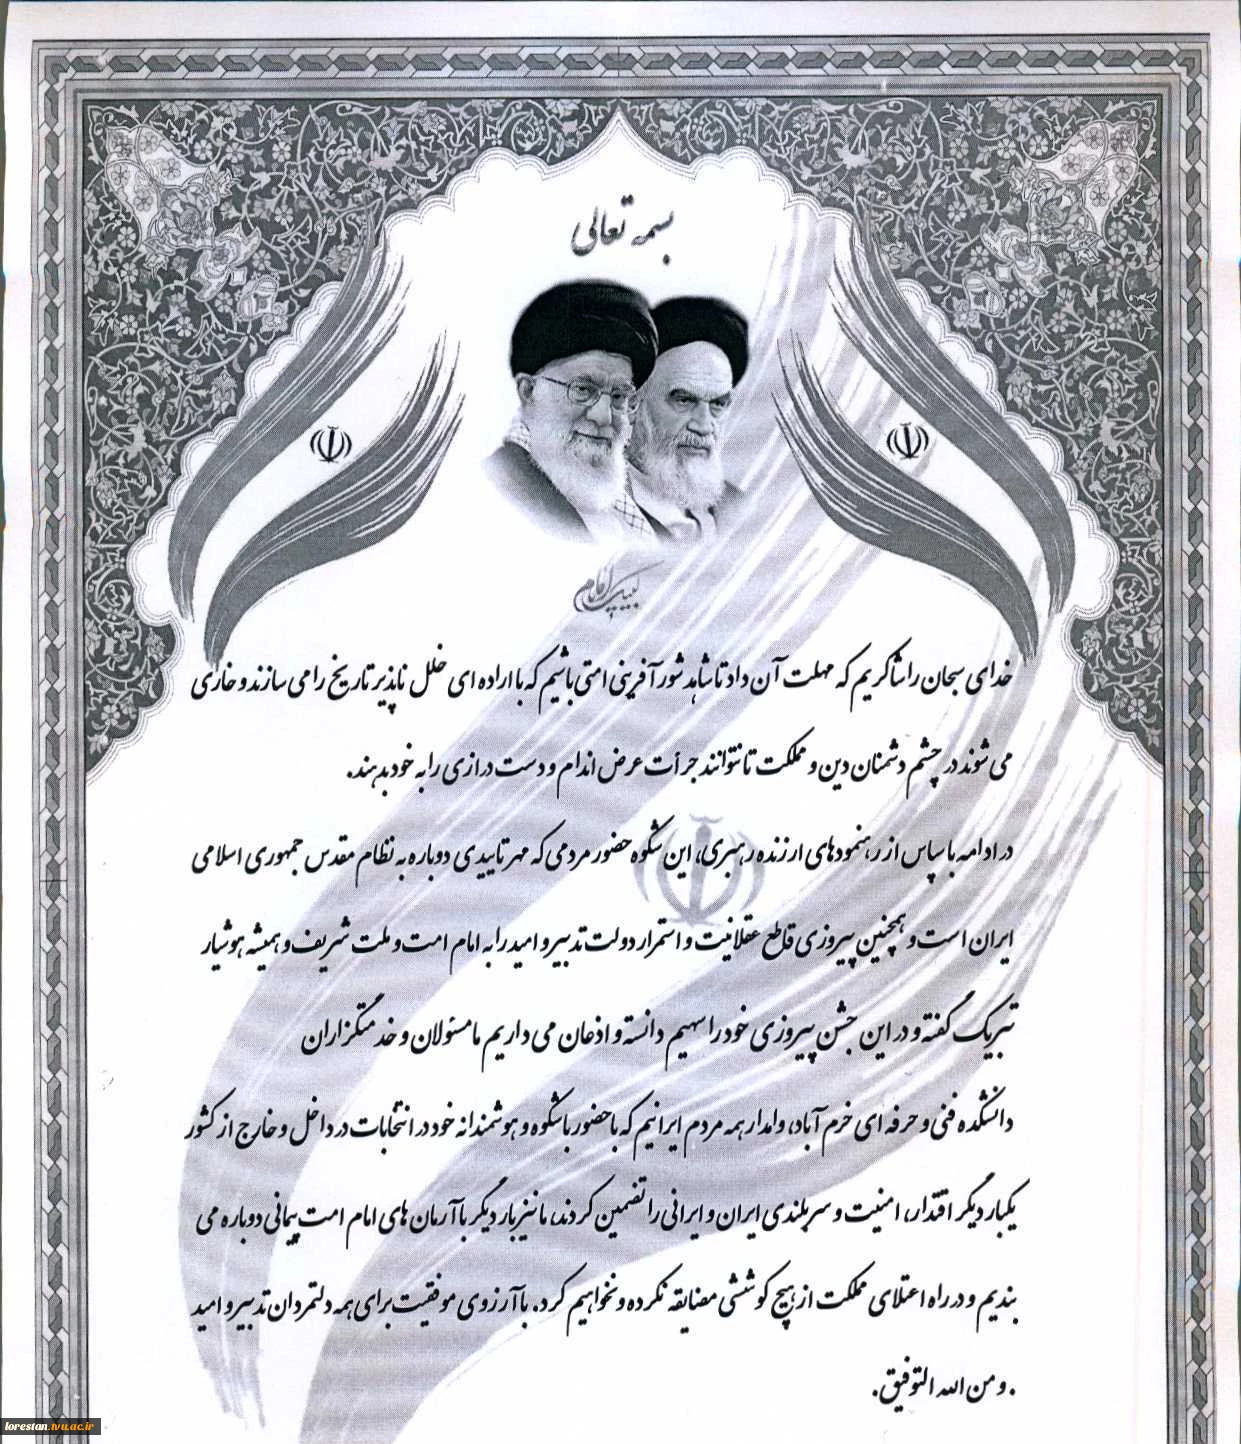 بسمه تعالی
لبیک یا امام
خدای سبحان را شاکریم که مهلت آن داد تا شاهد شور آفرینی امتی باشیم که با اراده ای خلل ناپذیر تاریخ را می سازند و خاری
می شوند در چشم دشمنان دین و مملکت تا نتوانند جرأت عرض اندام و دست درازی را به خود بدهند.
در ادامه با سپاس از رهنمودهای ارزنده رهبری، این شکوه حضور مردمی که مهر تاییدی دوباره به نظام مقدس جمهوری اسلامی
ایران است و همچنین پیروزی قاطع عقلانیت و استمرار دولت تدبیر و امید را به امام امت و ملت شریف و همیشه هوشیار
تبریک گفته و در این جشن پیروزی خود را سهیم دانسته و اذعان می داریم ما مسئولان و خدمتگزاران
دانشکده فنی و حرفه ای خرم آباد، وامدار همه مردم ایرانیم که با حضور باشکوه و هوشمندانه خود در انتخابات در داخل و خارج از کشور
یکبار دیگر اقتدار، امنیت و سربلندی ایران و ایرانی را تضمین کردند، ما نیز بار دیگر با آرمان های امام امت پیمانی دوباره می
بندیم و در راه اعتلای مملکت از هیچ کوششی مضایقه نکرده و نخواهیم کرد. با آرزوی موفقیت برای همه دولتمردان تدبیر و امید
. و من الله التوفیق.
lorestan.tvu.ac.ir